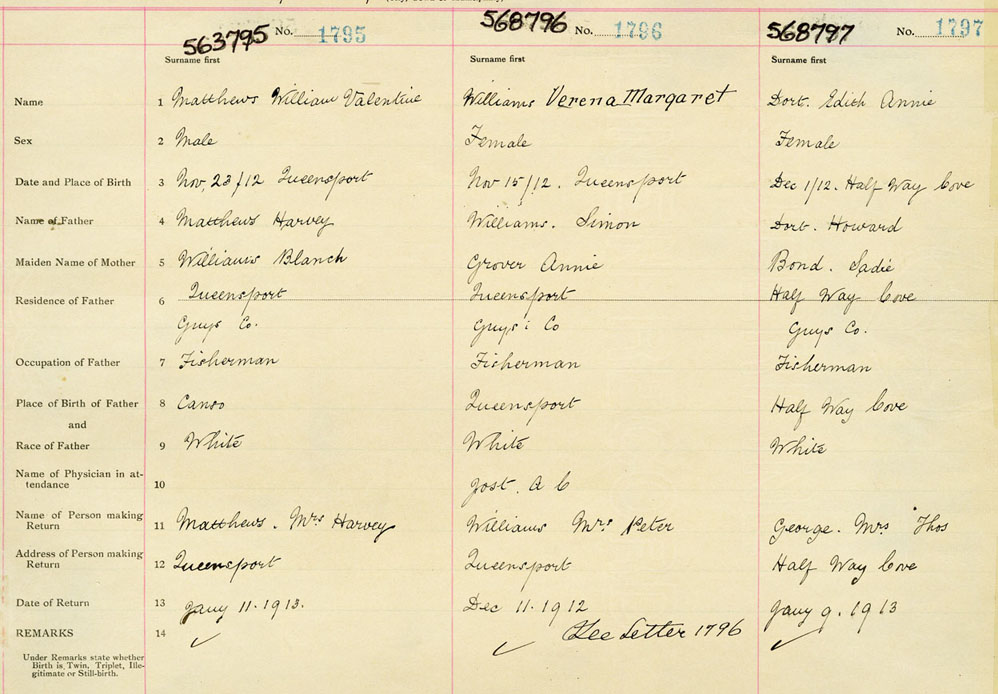 563795 No. 1795 568796 No. 1796 568797 No. 1797
Surname first Surname first Surname first
Name 1 Matthews William Valentine Williams Verena Margaret Dort. Edith Annie
Sex 2 Male Female Female
Date and Place of Birth 3 Nov, 23/12 Queensport Nov 15/12. Queensport Dec 1/12. Half Way Cove
Name of Father 4 Matthews Harvey Williams. Simon Dort. Howard
Maiden Name of Mother 5 Williams Blanch Grover Annie Bond. Sadie
Residence of Father 6 Queensport Queensport Half Way Cove
Guys Co. Guys: Co Guys Co.
Occupation of Father 7 Fisherman Fisherman Fisherman
Place of Birth of Father 8 Canso Queensport Half Way Cove
and
Race of Father 9 White White White
Name of Physician in at-
tendance 10 Jost. A C
Name of Person making
Return 11 Matthews. Mrs Harvey Williams Mrs Peter George. Mrs Thos
Address of Person making
Return 12 Queensport Queensport Half Way Cove
Date of Return 13 Jany 11. 1913. Dec 11. 1912 Jany 9. 1913
REMARKS 14 See Letter 1796
Under Remarks state whether
Birth is Twin, Triplet, Ille-
gitimate or Still-birth.